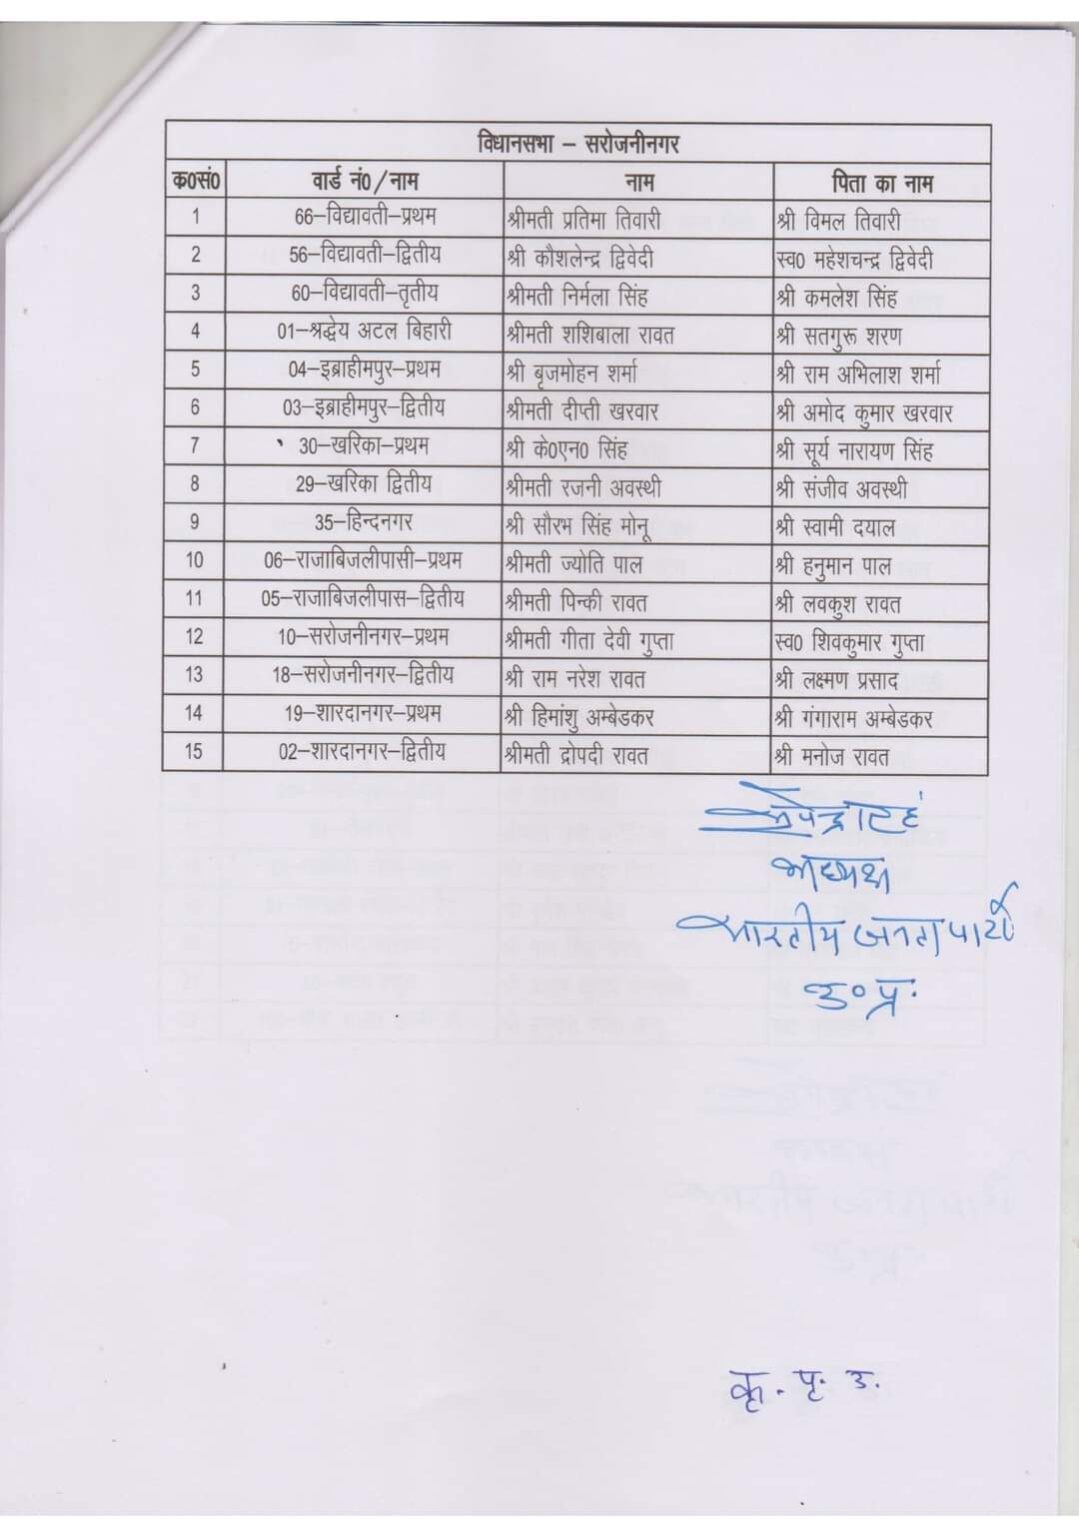 विधानसभा – सरोजनीनगर
क0सं0 वार्ड नं0/नाम नाम पिता का नाम
1 66–विद्यावती–प्रथम श्रीमती प्रतिमा तिवारी श्री विमल तिवारी
2 56–विद्यावती–द्वितीय श्री कौशलेन्द्र द्विवेदी स्व0 महेशचन्द्र द्विवेदी
3 60–विद्यावती–तृतीय श्रीमती निर्मला सिंह श्री कमलेश सिंह
4 01–श्रद्धेय अटल बिहारी श्रीमती शशिबाला रावत श्री सतगुरू शरण
5 04–इब्राहीमपुर–प्रथम श्री बृजमोहन शर्मा श्री राम अभिलाश शर्मा
6 03–इब्राहीमपुर–द्वितीय श्रीमती दीप्ती खरवार श्री अमोद कुमार खरवार
7 30–खरिका–प्रथम श्री के0एन0 सिंह श्री सूर्य नारायण सिंह
8 29–खरिका द्वितीय श्रीमती रजनी अवस्थी श्री संजीव अवस्थी
9 35–हिन्दनगर श्री सौरभ सिंह मोनू श्री स्वामी दयाल
10 06–राजाबिजलीपासी–प्रथम श्रीमती ज्योति पाल श्री हनुमान पाल
11 05–राजाबिजलीपास–द्वितीय श्रीमती पिन्की रावत श्री लवकुश रावत
12 10–सरोजनीनगर–प्रथम श्रीमती गीता देवी गुप्ता स्व0 शिवकुमार गुप्ता
13 18–सरोजनीनगर–द्वितीय श्री राम नरेश रावत श्री लक्ष्मण प्रसाद
14 19–शारदानगर–प्रथम श्री हिमांशु अम्बेडकर श्री गंगाराम अम्बेडकर
15 02–शारदानगर–द्वितीय श्रीमती द्रोपदी रावत श्री मनोज रावत
अध्यक्ष
भारतीय जनता पार्टी
उ० प्र.
कृ. पृ. उ.